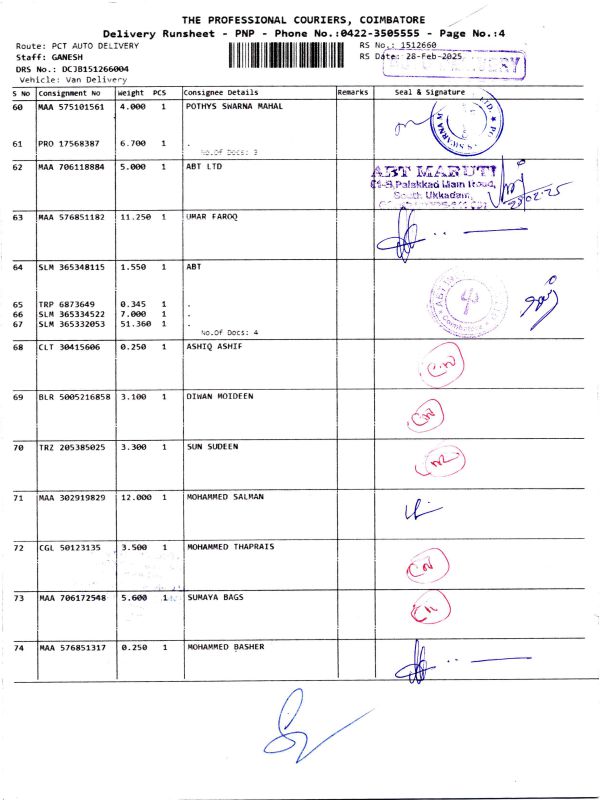 THE PROFESSIONAL COURIERS, COIMBATORE
Delivery Runsheet - PNP - Phone No.:0422-3505555 - Page No.:4
Route: PCT AUTO DELIVERY
RS No.: 1512660
Staff: GANESH
RS Date: 28-Feb-2025
DRS No.: DCJB151266004
Vehicle: Van Delivery
DELIVERY
S No Consignment No Weight PCS Consignee Details Remarks Seal & Signature
60 MAA 575101561 4.000 1 POTHYS SWARNA MAHAL
61 PRO 17568387 6.700 1 .
No.Of Docs: 3
62 MAA 706118884 5.000 1 ABT LTD
ABT MARUTI
Palakkad Main Road,
South Ukkadam,
28/02/25
63 MAA 576851182 11.250 1 UMAR FAROQ
64 SLM 365348115 1.550 1 ABT
65 TRP 6873649 0.345 1 .
66 SLM 365334522 7.000 1 .
67 SLM 365332053 51.360 1 .
No.Of Docs: 4
Coimbatore
68 CLT 30415606 0.250 1 ASHIQ ASHIF
69 BLR 5005216858 3.100 1 DIWAN MOIDEEN
70 TRZ 205385025 3.300 1 SUN SUDEEN
71 MAA 302919829 12.000 1 MOHAMMED SALMAN
72 CGL 50123135 3.500 1 MOHAMMED THAPRAIS
73 MAA 706172548 5.600 1 SUMAYA BAGS
74 MAA 576851317 0.250 1 MOHAMMED BASHER